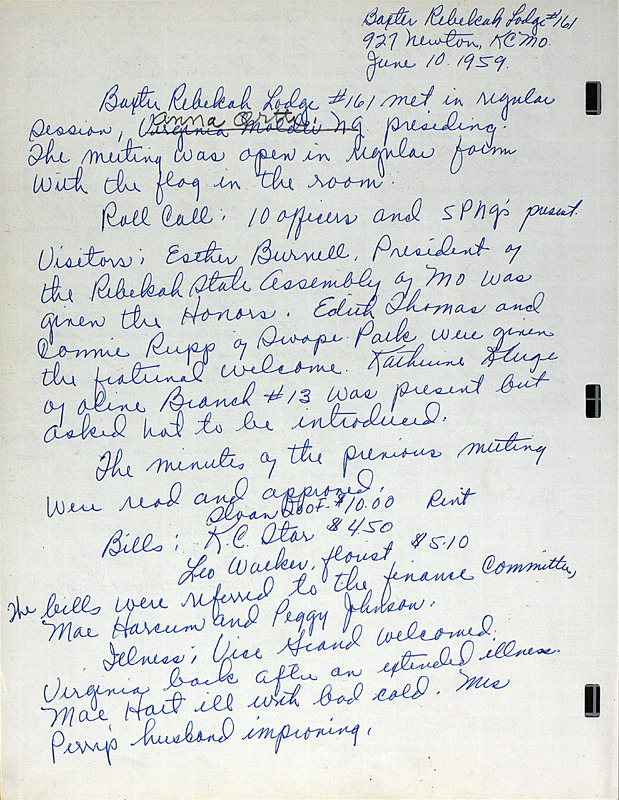 Baxter Rebekah Lodge #161
927 Newton, KCMo.
June 10. 1959.
Baxter Rebekah Lodge #161 met in regular
Anna
session, Virginia NG presiding.
The meeting was open in regular form
with the flag in the room.
Roll Call: 10 officers and 5 PNG's present.
Visitors: Esther Burnell, President of
the Rebekah State Assembly of Mo was
given the Honors. Edith Thomas and
Connie Rupp of Swope Park were given
the fraternal welcome. Katherine
of Olive Branch #13 was present but
asked not to be introduced.
The minutes of the previous meeting
were read and approved.
Sloan IOOF - $10.00 Rent
Bills: K.C. Star $4.50
Leo Walker, florist $5.10
The bills were referred to the finance Committee,
Mae Harcum and Peggy Johnson.
Illness; Vice Grand welcomed.
Virginia back after an extended illness.
Mae Hart ill with bad cold. Mrs
Perry's husband improving.